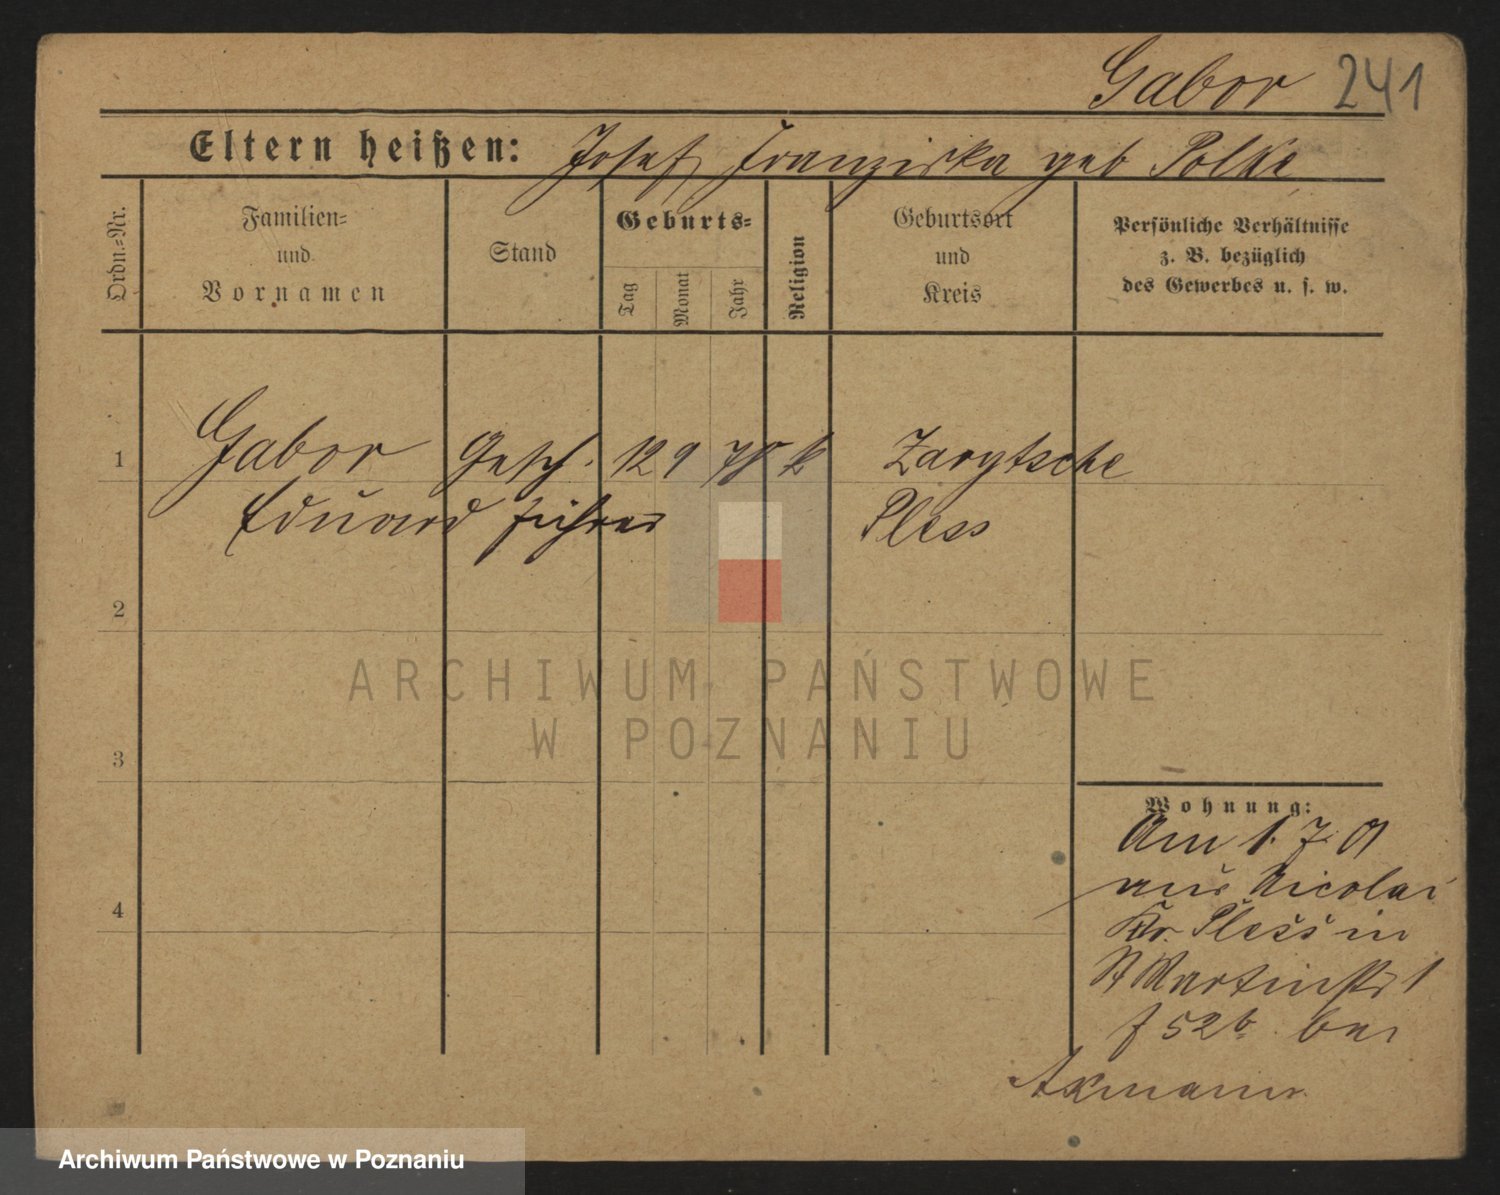 Gabor 241
Eltern heißen: Josef, Franziska geb Polke
Ordn.=Nr.
Familien=
und
Vornamen
Stand
Geburts=
Tag
Monat
Jahr
Religion
Geburtsort
und
Kreis
Persönliche Verhältnisse
z. B. bezüglich
des Gewerbes u. s. w.
1 Gabor Gesch. 12 9 78 k Zarytsche
Eduard führer Pless
2
3
4
ARCHIWUM PAŃSTWOWE
W POZNANIU
Wohnung:
Am 1. 7. 01
aus Nicolai
Kr. Pless in
St Martinstr
52b bei
Axmann
Archiwum Państwowe w Poznaniu